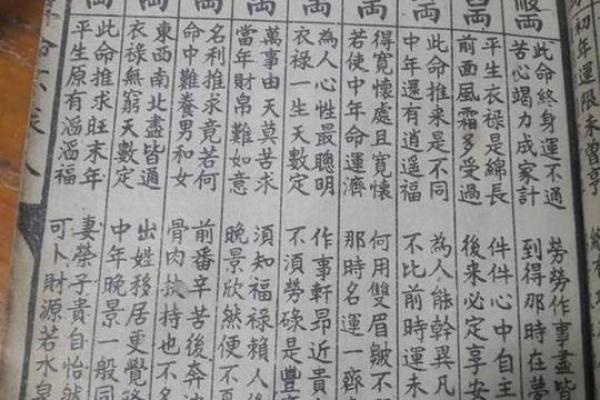 初年運限未曾亨
兩
此命終身運不通 勞勞作事盡皆
苦心竭力成家計 到得那時在夢
兩
平生衣禄是綿長 件件心中自主
前面風霜多受過 後来必定享安
兩
此命推来是不同 為人能幹異凡
中年還有逍遥福 不比前時運未
兩
得寬懷處且寬懷 何用雙眉皺不
若使中年命運濟 那時名運一齊
兩
為人心性最聰明 作事軒昂近貴
衣禄一生天數定 不須勞碌是豐
兩
萬事由天莫苦求 須知福禄賴人
當年財帛難如意 晚景欣然便不
兩
名利推求竟若何 前番辛苦後奔
命中難養男和女 骨肉扶持也不
兩
東西南北盡皆通 出姓移居更覺
衣禄無窮天數定 中年晚景一般同
兩
此命推求旺末年 妻榮子貴自怡然
平生原有滔滔福 可卜財源若水泉